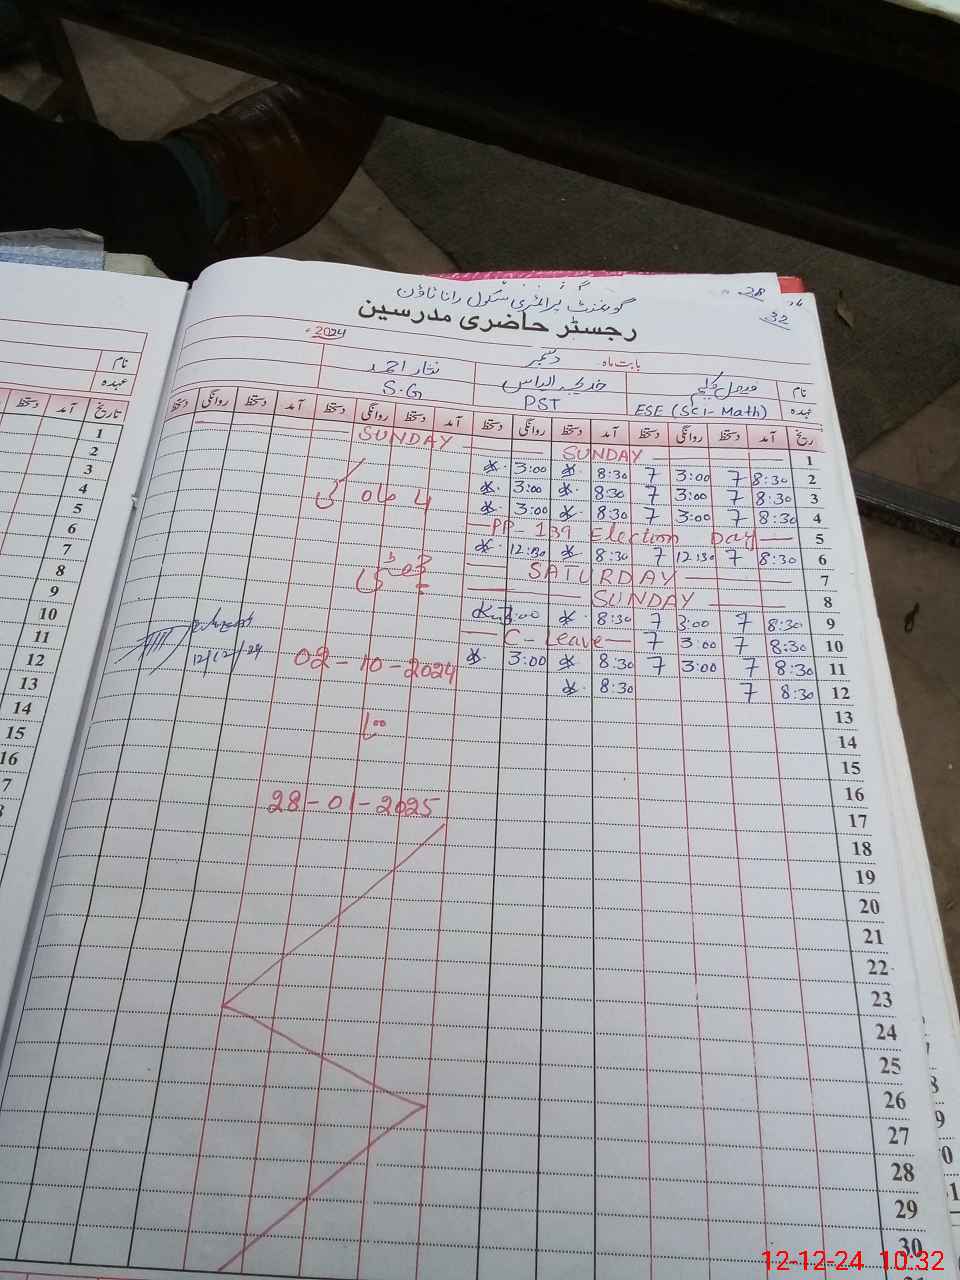 28
32
گورنمنٹ پرائمری سکول رانا ٹاؤن
رجسٹر حاضری مدرسین
بابت ماہ دسمبر 2024
نام خدیجہ الیاس نثار احمد
عہدہ ESE (Sci-Math) PST S.G
تاریخ آمد دستخط روانگی دستخط آمد دستخط روانگی دستخط آمد دستخط روانگی دستخط آمد دستخط روانگی دستخط
1 SUNDAY SUNDAY
2 8:30 7 3:00 7 8:30 3:00
3 8:30 7 3:00 7 8:30 3:00
4 8:30 7 3:00 7 8:30 3:00
4 ماہ کی
5 PP-139 Election Day
6 8:30 7 12:30 7 8:30 12:30
7 SATURDAY
8 SUNDAY
9 8:30 7 3:00 7 8:30 3:00
10 8:30 7 3:00 7 C-Leave
11 8:30 7 3:00 7 8:30 3:00
02-10-2024
12/12/24
12 8:30 7 8:30
13
تا
14
15
16
28-01-2025
17
18
19
20
21
22
23
24
25
26
27
28
29
30
نام
عہدہ
تاریخ آمد دستخط
1
2
3
4
5
6
7
8
9
10
11
12
13
14
15
16
12-12-24 10:32